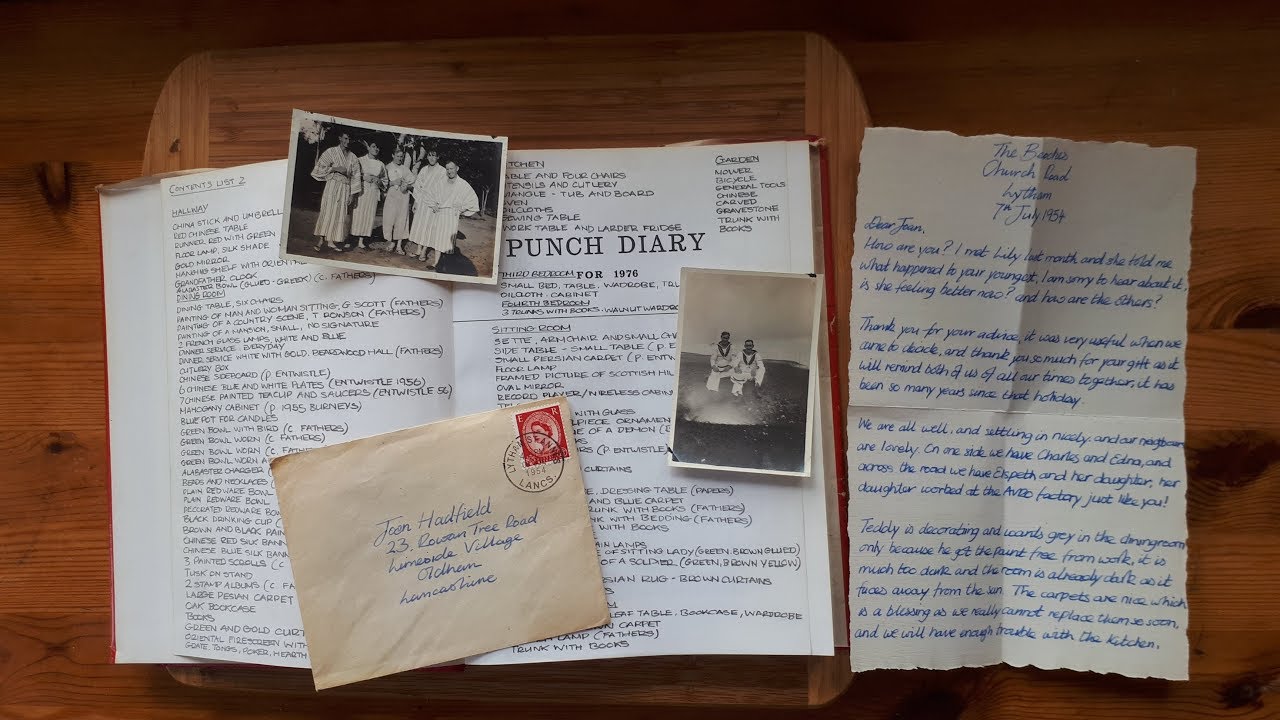 CONTENTS LIST 2
HALLWAY
CHINA STICK AND UMBRELL
RED CHINESE TABLE
RUNNER RED WITH GREEN
FLOOR LAMP, SILK SHADE
GOLD MIRROR
HANGING SHELF WITH ORIENTAL
GRANDFATHER CLOCK
ALABASTER BOWL (GLUED - GREEK) (C. FATHERS)
DINING ROOM
DINING TABLE, SIX CHAIRS
PAINTING OF MAN AND WOMAN SITTING, G SCOTT (FATHERS)
PAINTING OF A COUNTRY SCENE, T ROWSON (FATHERS)
PAINTING OF A MANSION, SMALL, NO SIGNATURE
3 FRENCH GLASS LAMPS, WHITE AND BLUE
DINNER SERVICE EVERYDAY
DINNER SERVICE WHITE WITH GOLD. BEARDWOOD HALL (FATHERS)
CUTLURY BOX
CHINESE SIDEBOARD (P. ENTWISTLE)
6 CHINESE BLUE AND WHITE PLATES (ENTWISTLE 1956)
7 CHINESE PAINTED TEACUP AND SAUCERS (ENTWISTLE 56)
MAHOGANY CABINET (P 1955 BURNEYS)
BLUE POT FOR CANDLES
GREEN BOWL WITH BIRD (C. FATHERS)
GREEN BOWL WORN (C. FATHERS)
GREEN BOWL WORN (C. FATHERS)
GREEN BOWL WORN
ALABASTER CHARGER
BEADS AND NECKLACES
PLAIN RED WARE BOWL
PLAIN REDWARE
DECORATED REDWARE BOWL
BLACK DRINKING CUP
BROWN AND BLACK
CHINESE RED SILK
CHINESE BLUE SILK
3 PAINTED SCROLLS (C.
TUSK ON STAND
2 STAMP ALBUMS (C.
LARGE PESIAN CARPET
OAK BOOKCASE
BOOKS
GREEN AND GOLD
ORIENTAL FIRESCREEN WITH
GRATE, TONGS, POKER, HEARTH
KITCHEN
TABLE AND FOUR CHAIRS
UTENSILS AND CUTLERY
MANGLE - TUB AND BOARD
OVEN
OILCLOTHS
SEWING TABLE
WORK TABLE AND LARDER FRIDGE
GARDEN
MOWER
BICYCLE
GENERAL TOOLS
CHINESE
CARVED
GRAVESTONE
TRUNK WITH
BOOKS
PUNCH DIARY
FOR 1976
THIRD BEDROOM
SMALL BED, TABLE, WADROBE,
OILCLOTH. CABINET
FOURTH BEDROOM
3 TRUNKS WITH BOOKS. WALNUT WARDRO
SITTING ROOM
SETTE, ARMCHAIR AND SMALL
SIDE TABLE - SMALL TABLE (P.
SMALL PERSIAN CARPET (P. ENTW
FLOOR LAMP
FRAMED PICTURE OF SCOTTISH
OVAL MIRROR
RECORD PLAYER/WIRELESS CABINE
WITH GLASS
ORNAMEN
OF A DEMON (E
(P. ENTWISTLE)
CURTAINS
DRESSING TABLE (PAPERS)
AND BLUE CARPET
WITH BOOKS (FATHERS)
WITH BEDDING (FATHERS)
WITH BOOKS
LAMPS
OF SITTING LADY (GREEN, BROWN GLUED)
OF A SOLDIER (GREEN, BROWN YELLOW)
RUG - BROWN CURTAINS
TABLE, BOOKCASE, WARDROBE
CARPET
LAMP (FATHERS)
TRUNK WITH BOOKS
LYTHAM
1954
LANCS
Joan Hadfield
23, Rowan Tree Road
Limeside Village
Oldham
Lancashire
The Beeches
Church Road
Lytham
7th July 1954
Dear Joan,
How are you? I met Lily last month and she told me
what happened to your youngest, I am sorry to hear about it,
is she feeling better now? and how are the others?
Thank you for your advice, it was very useful when we
came to decide, and thank you so much for your gift as it
will remind both of us of all our times together, it has
been so many years since that holiday.
We are all well, and settling in nicely, and our neighbours
are lovely. On one side we have Charles and Edna, and
across the road we have Elspeth and her daughter, her
daughter worked at the AVRO factory just like you!
Teddy is decorating and wants grey in the diningroom
only because he got the paint free from work, it is
much too dark and the room is already dark as it
faces away from the sun. The carpets are nice which
is a blessing as we really cannot replace them so soon,
and we will have enough trouble with the kitchen.